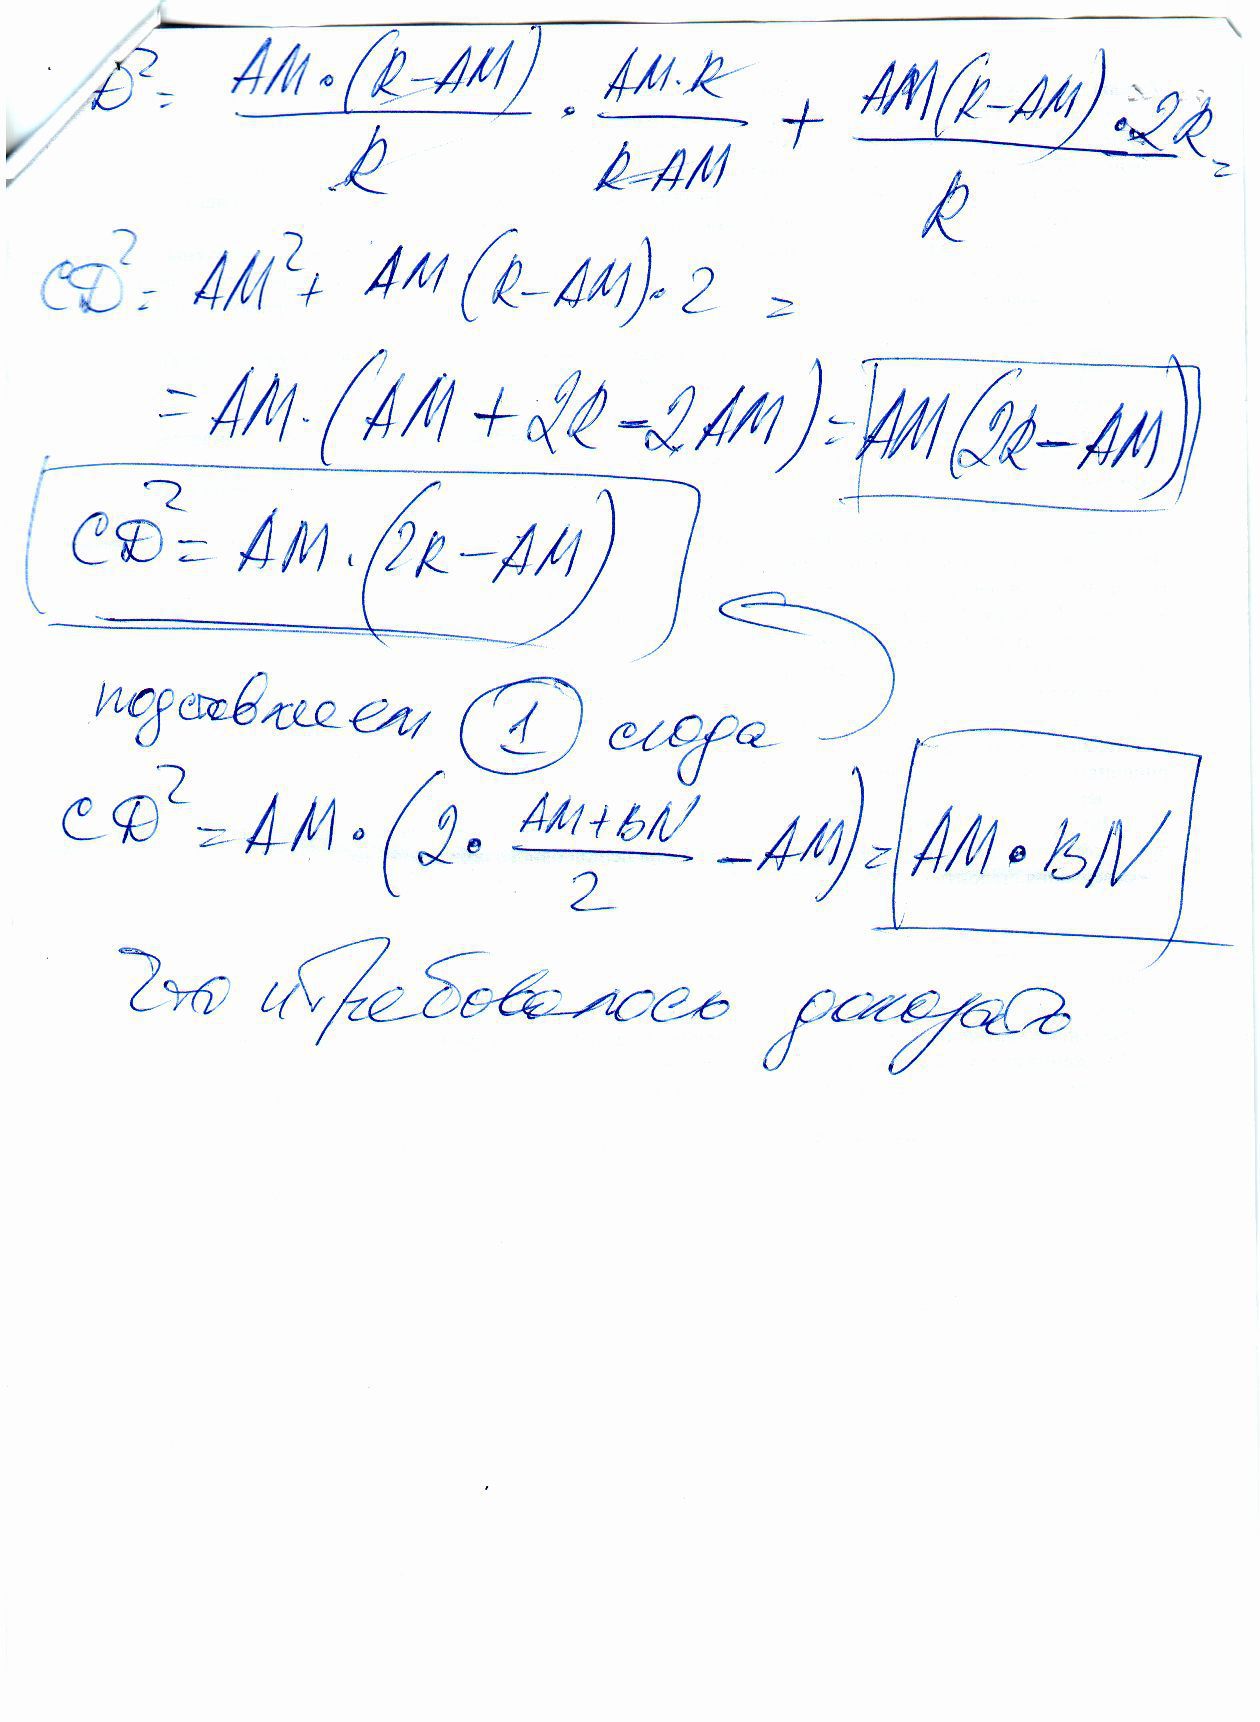 D² = AM·(R−AM)/R · AM·R/(R−AM) + AM(R−AM)·2R/R =
CD² = AM² + AM(R−AM)·2 =
= AM·(AM + 2R − 2AM) = AM(2R − AM)
CD² = AM·(2R − AM)
подставляем 1 сюда
CD² = AM·(2·(AM+BN)/2 − AM) = AM·BN
Что и требовалось доказать